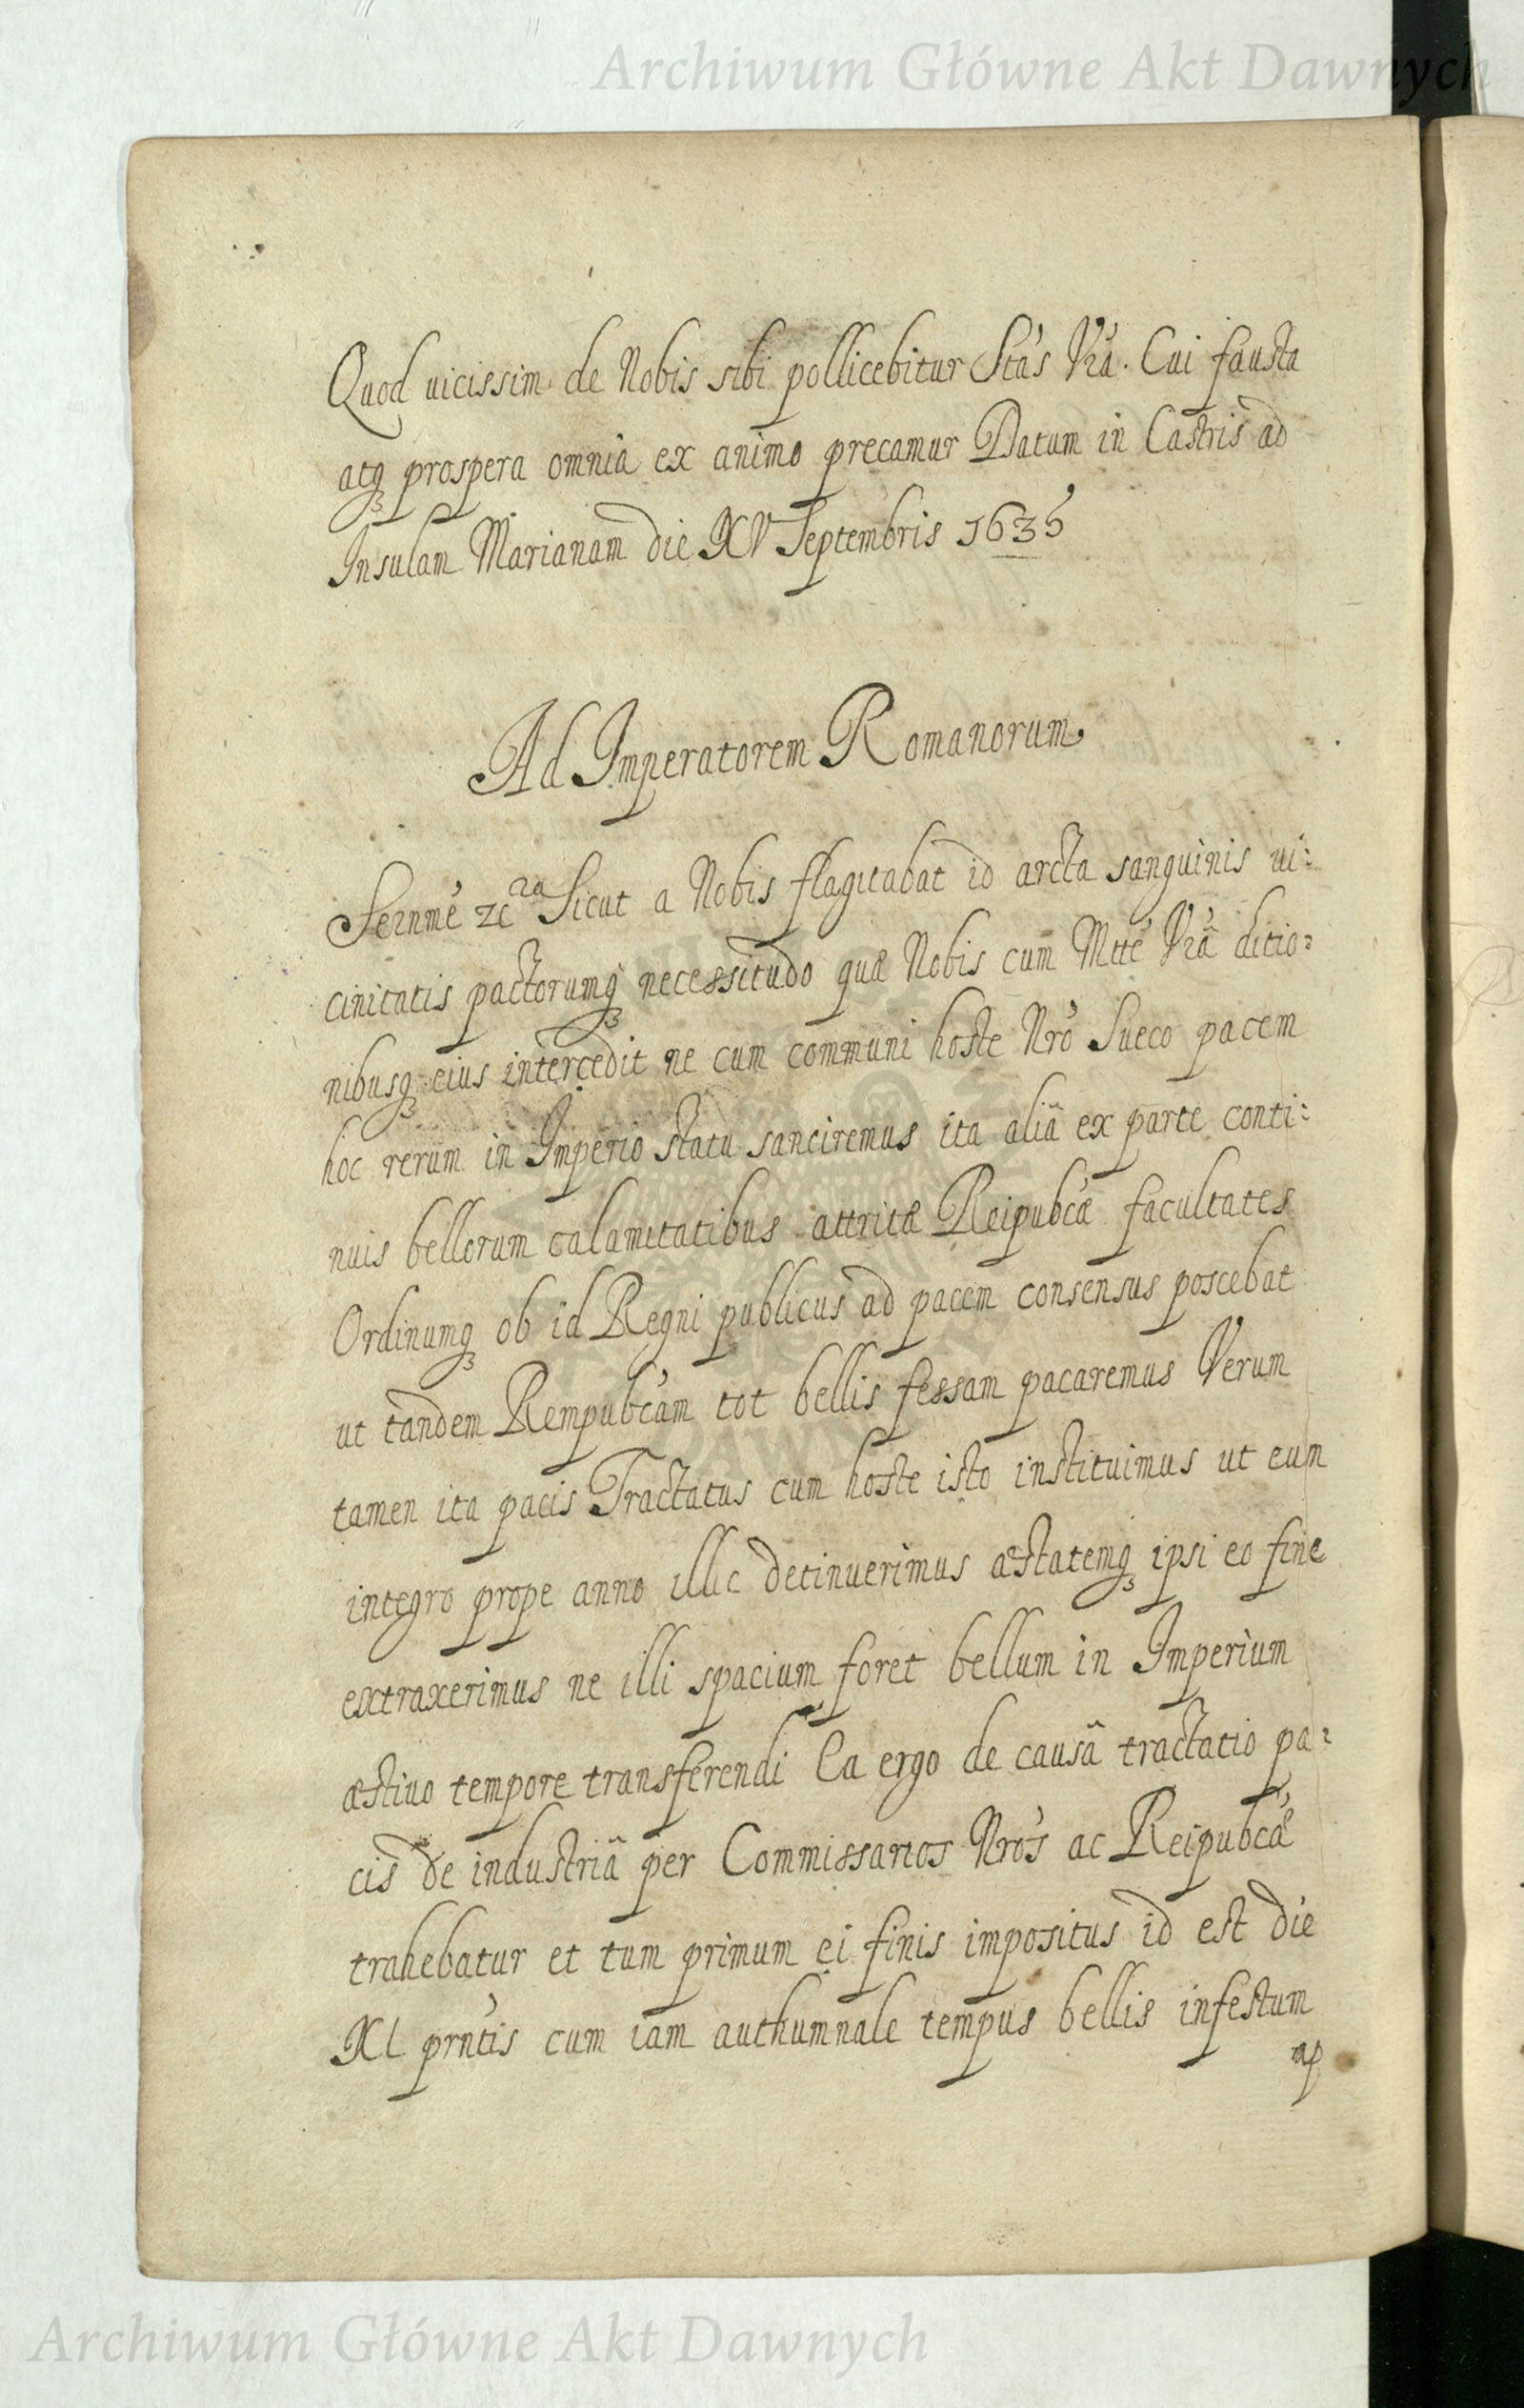 Archiwum Główne Akt Dawnych
Quod uicissim de Nobis sibi pollicebitur Stas Vra. Cui fausta
atq prospera omnia ex animo precamur Datum in Castris ad
Insulam Marianam die XV Septembris 1635
Ad Imperatorem Romanorum
Sernme zc ra Sicut a Nobis flagitabat id arcta sanguinis ui:
cinitatis pactorumq necessitudo quæ Nobis cum Mtte Vrâ ditio:
nibusq eius intercedit ne cum communi hoste Nro Sueco pacem
hoc rerum in Imperio statu sanciremus ita aliâ ex parte conti:
nuis bellorum calamitatibus attritæ Reipubcæ facultates
Ordinumq ob id Regni publicus ad pacem consensus poscebat
ut tandem Rempubcam tot bellis fessam pacaremus Verum
tamen ita pacis Tractatus cum hoste isto instituimus ut eum
integro prope anno illic detinuerimus æstatemq ipsi eo fine
extraxerimus ne illi spacium foret bellum in Imperium
æstiuo tempore transferendi Ea ergo de causâ tractatio pa:
cis de industriâ per Commissarios Nros ac Reipubcæ
trahebatur et tum primum ei finis impositus id est die
XI prntis cum iam authumnale tempus bellis infestum
ap
Archiwum Główne Akt Dawnych